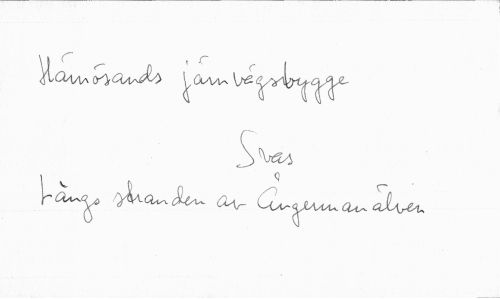 Härnösands järnvägsbygge
Svas
Längs stranden av Ångermanälven